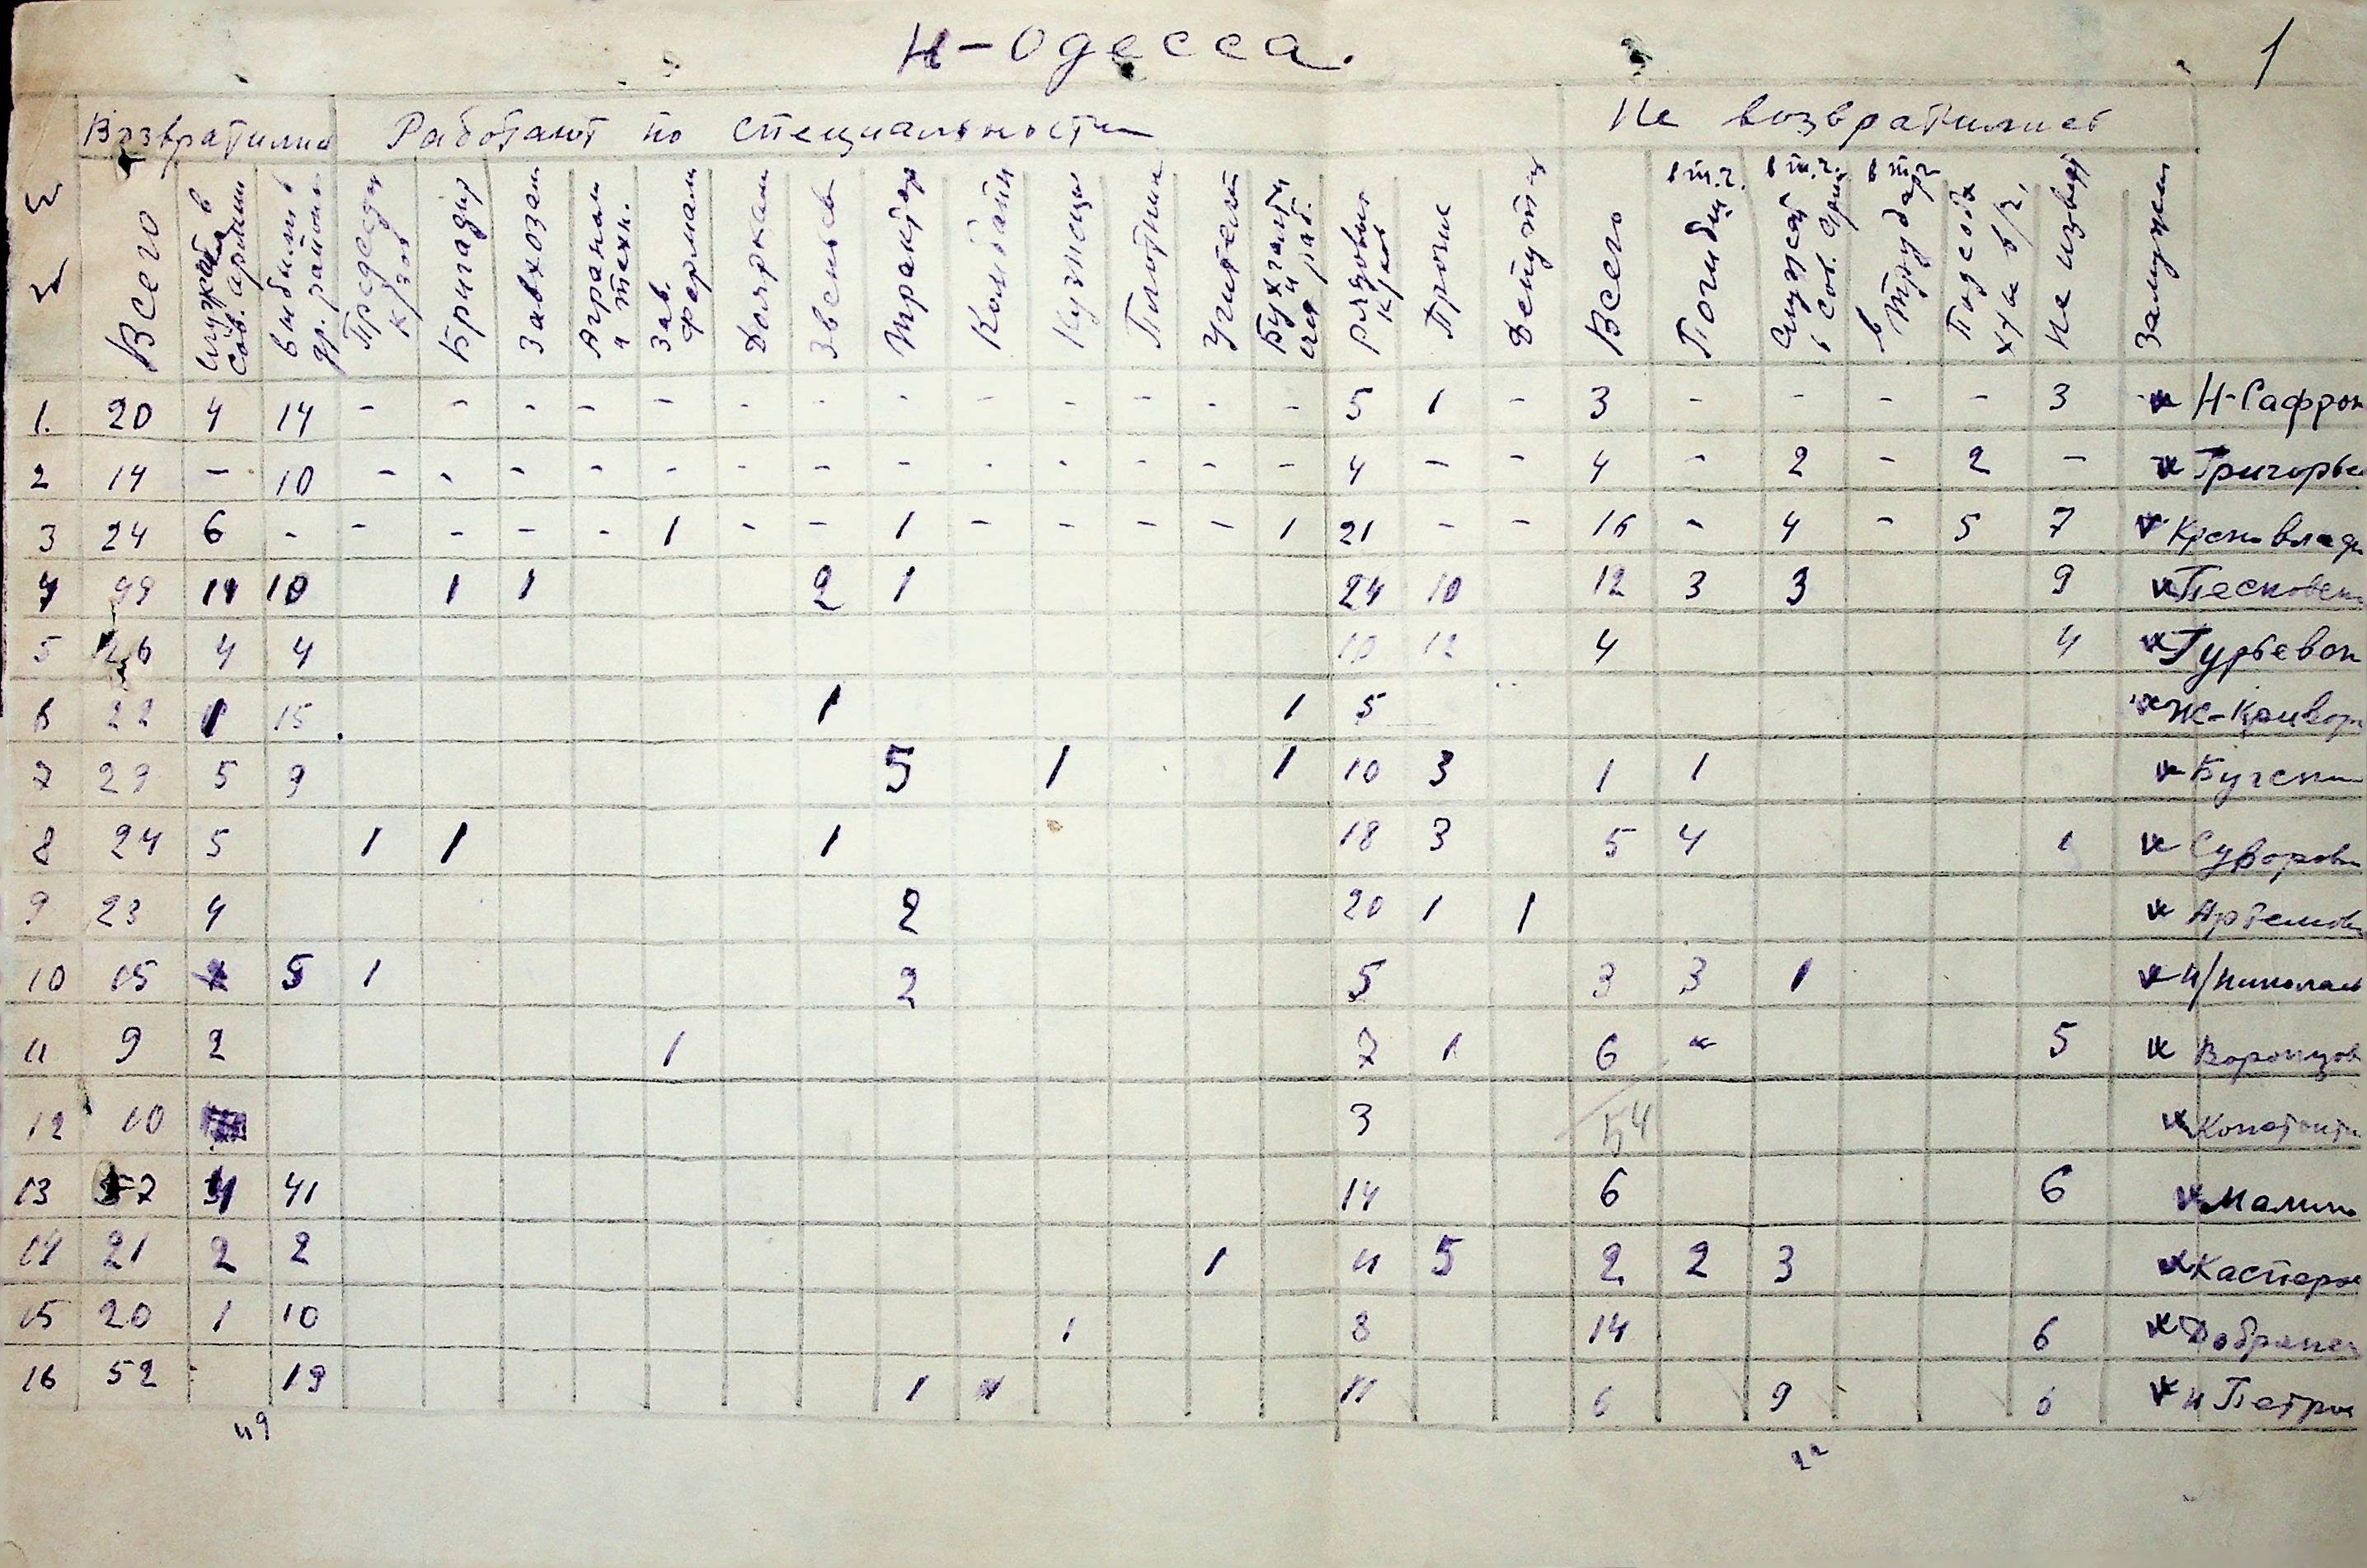 Н-Одесса.
1
№ №
Возвратились
Работают по специальности
Не возвратились
Всего
служат в сов. армии
выбыли в др. районы
Председ. к/зов
Бригадир
Завхозам
Агроном и техн.
Зав. фермам
Дояркам
Звеньев
Трактор
Комбайн
Кузнецы
Плотник
Учителей
Бухгалт и счет раб.
Рядовых к/ков
Прочие
Депутат
Всего
в т.ч. Погибш.
в т.ч. служат в сов. арм
в т.ч. в трударм
Подсобн х/ы в/г,
Не извест
Замужем
1. 20 4 14 - - - - - - - - - - - - - 5 1 - 3 - - - - 3 - Н-Сафрон
2 14 - 10 - - - - - - - - - - - - - 4 - - 4 - 2 - 2 - - Григорьев
3 24 6 - - - - - 1 - - 1 - - - - 1 21 - - 16 - 4 - 5 7 Красновлади
4 99 14 10 1 1 2 1 24 10 12 3 3 9 Песковск
5 26 4 4 10 12 4 4 Гурьевск
6 22 1 15 1 1 5 Ж-Кривор
7 29 5 9 5 1 1 10 3 1 1 Бугски
8 24 5 1 1 1 18 3 5 4 1 Суворовк
9 23 4 2 20 1 1 Артемовк
10 15 5 1 2 5 3 3 1 Н/Николаев
11 9 2 1 7 1 6 5 Воронцов
12 10 3 54 Константи
13 57 4 41 14 6 6 Малино
14 21 2 2 1 11 5 2 2 3 Касперов
15 20 1 10 1 8 14 6 Добранск
16 52 19 1 11 6 9 6 Н Петров
49
22